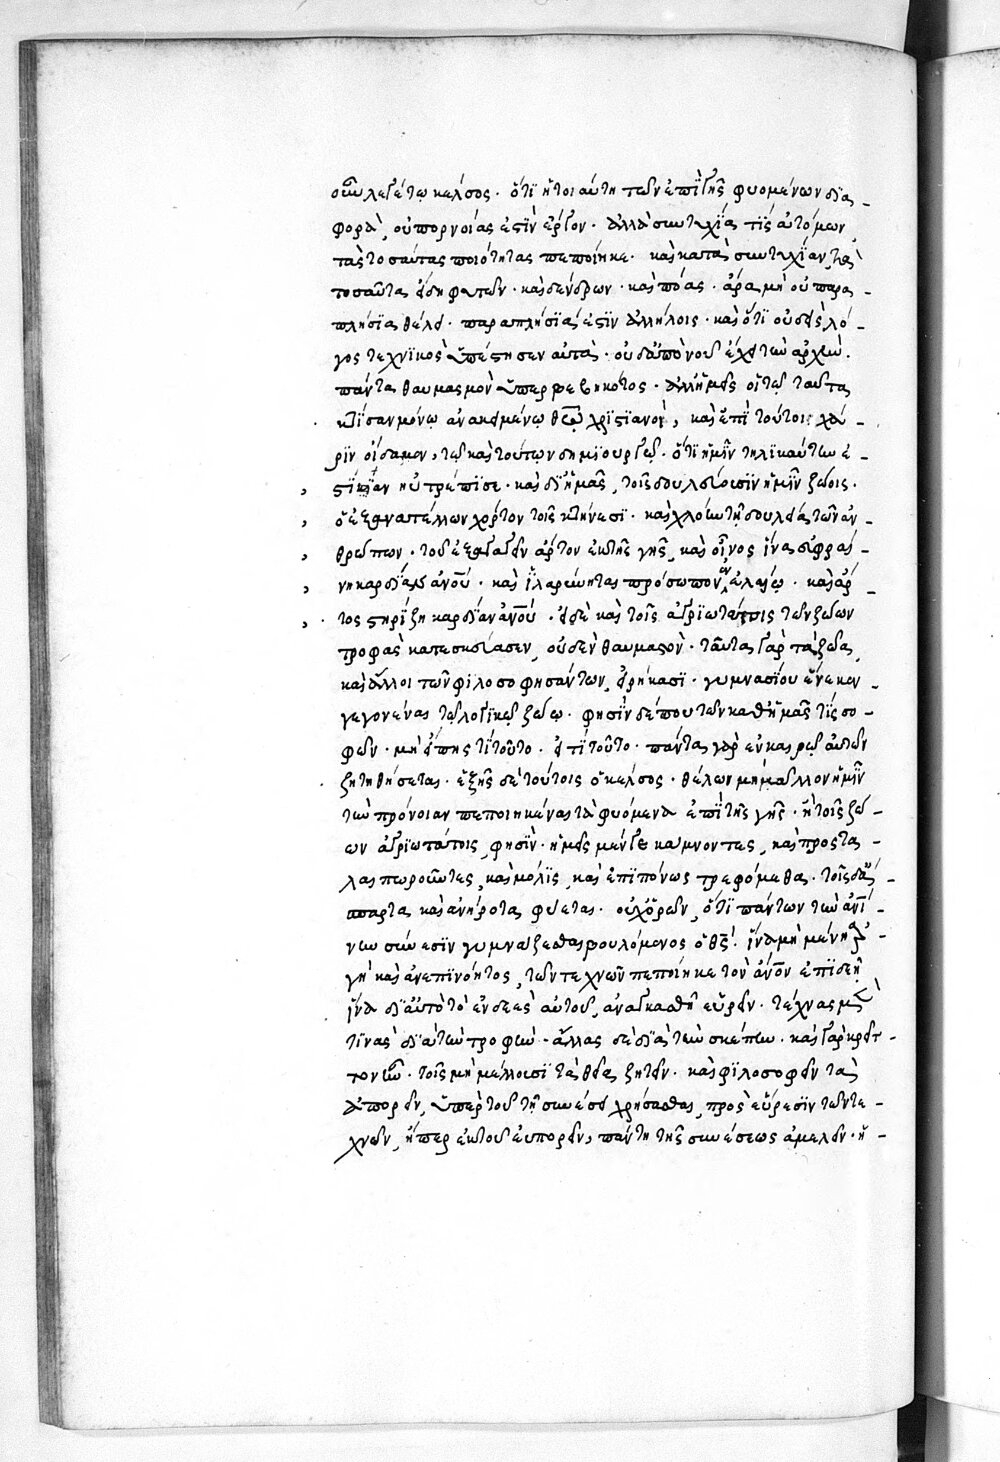 οὖν λεγέτω κέλσος· ὅτι ἡ τοιαύτη τῶν ἐπὶ γῆς φυομένων δια-
φορὰ, οὐ προνοίας ἐστὶν ἔργον· ἀλλὰ συντυχία τίς ἀτόμων,
τὰς τοσαύτας ποιότητας πεποίηκε· καὶ κατὰ συντυχίαν, τὰ
τοσαῦτα εἴδη φυτῶν· καὶ δένδρων· καὶ πόας· ἄρα μὴ οὐ παρα-
πλήσια θέλει· παραπλήσιά ἐστιν ἀλλήλοις· καὶ ὅτι οὐδεὶς λό-
γος τεχνικὸς ὑπέστησεν αὐτὰ· οὐδ' ἀπὸ νοῦ ἔχει τὴν ἀρχὴν.
πάντα θαυμασμὸν ὑπερβεβηκότος· ἀλλ' ἡμεῖς οἱ τῷ ταῦτα
κτίσαντι μόνῳ ἀνακείμενοι θεῷ χριστιανοὶ, καὶ ἐπὶ τούτοις χά-
ριν οἴδαμεν, τῷ καὶ τούτων δημιουργῷ· ὅτι ἡμῖν τηλικαύτην ἑ-
στίαν ηὐτρέπισε· καὶ δι' ἡμᾶς, τοῖς δουλεύουσιν ἡμῖν ζώοις·
ὁ ἐξανατέλλων χόρτον τοῖς κτήνεσι· καὶ χλόην τῇ δουλείᾳ τῶν ἀν-
θρώπων· τοῦ ἐξαγαγεῖν ἄρτον ἐκ τῆς γῆς, καὶ οἶνος ἵνα εὐφραί-
νῃ καρδίαν ἀνου· καὶ ἱλαρύνηται πρόσωπον ἐν ἐλαίῳ· καὶ ἄρ-
τος στηρίζῃ καρδίαν ἀνου· εἰ δὲ καὶ τοῖς ἀγριωτάτοις τῶν ζώων
τροφὰς κατεσκεύασεν, οὐδὲν θαυμαστὸν· ταῦτα γὰρ τὰ ζῶα,
καὶ ἄλλοι τῶν φιλοσοφησάντων, εἰρήκασι· γυμνασίου ἕνεκεν
γεγονέναι τῷ λογικῷ ζώῳ· φησὶν δέ που τῶν καθ' ἡμᾶς τίς σο-
φῶν· μὴ εἴπῃς τί τοῦτο· εἰς τί τοῦτο· πάντα γὰρ ἐν καιρῷ αὐτῶν
ζητηθήσεται· ἑξῆς δὲ τούτοις ὁ κέλσος· θέλων μὴ μᾶλλον ἡμῖν
τὴν πρόνοιαν πεποιηκέναι τὰ φυόμενα ἐπὶ τῆς γῆς· ἢ τοῖς ζώ-
ων ἀγριωτάτοις, φησὶν· ἡμεῖς μέν γε κάμνοντες, καὶ προστα-
λαιπωροῦντες, καὶ μόλις, καὶ ἐπιπόνως τρεφόμεθα· τοῖς δ' ἄ-
σπαρτα καὶ ἀνήροτα φύεται· οὐχ ὁρῶν, ὅτι πάντων τὴν ἀνί-
νην σύνεσιν γυμνάζεσθαι βουλόμενος ὁ θς. ἵνα μὴ μένῃ ἀρ-
γὴ καὶ ἀνεπινόητος, τῶν τεχνῶν πεποίηκε τὸν ἄνον ἐπιδεῆ
ἵνα δι' αὐτὸ τὸ ἐνδεὲς αὐτοῦ, ἀναγκασθῇ εὑρεῖν· τέχνας μὲν
τινὰς διὰ τὴν τροφὴν· ἄλλας δὲ διὰ τὴν σκέπην. καὶ γὰρ κρεῖτ-
τον ἦν· τοῖς μὴ μέλλουσι τὰ θεῖα ζητεῖν· καὶ φιλοσοφεῖν τὰ
ἀπορεῖν, ὑπὲρ τοῦ τῇ συνέσει χρήσασθαι, πρὸς εὕρεσιν τῶν τε-
χνῶν, ἤπερ ἐκ τοῦ εὐπορεῖν, πάντῃ τῆς συνέσεως ἀμελεῖν· ἡ-